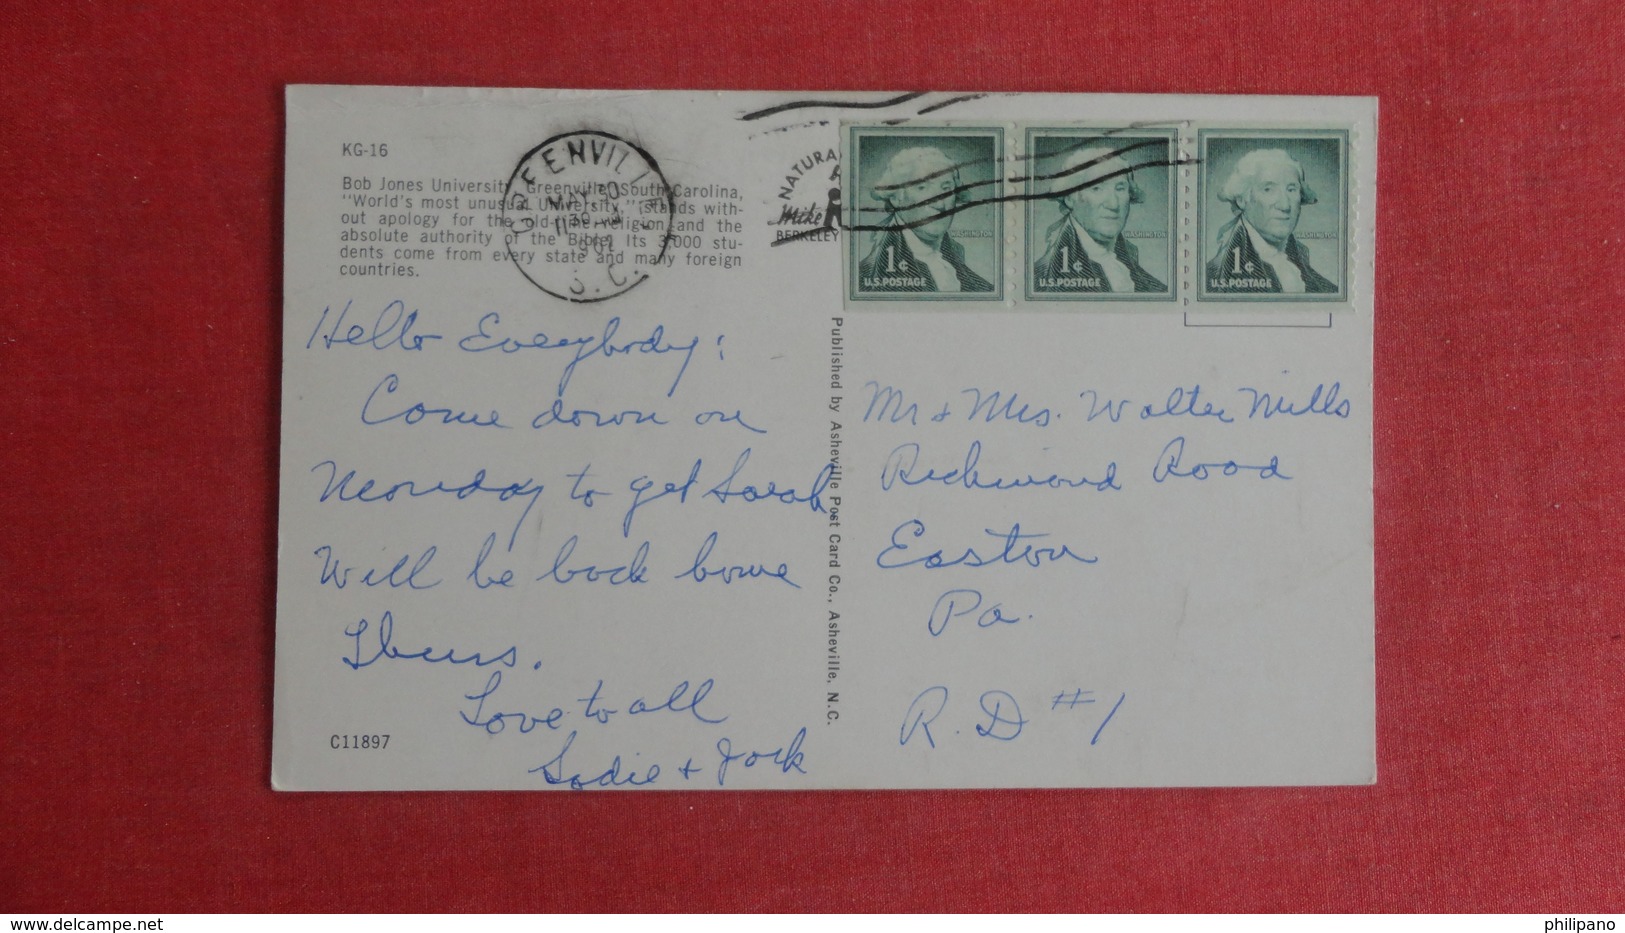 KG-16
Bob Jones University, Greenville, South Carolina,
"World's most unusual University," stands with-
out apology for the old-time religion and the
absolute authority of the Bible. Its 3,000 stu-
dents come from every state and many foreign
countries.
GREENVILLE
MAY 30
S.C.
NATURA
Mike
BERKELEY
1¢
WASHINGTON
U.S. POSTAGE
1¢
WASHINGTON
U.S. POSTAGE
1¢
WASHINGTON
U.S. POSTAGE
Hello Everybody:
Come down on
Monday to get Sarah,
Will be back home
Thurs.
Love to all
Sadie + Jack
C11897
Published by Asheville Post Card Co., Asheville, N.C.
Mr + Mrs. Walter Mills
Richmond Road
Easton
Pa.
R.D #1
philipano
delcampe.net